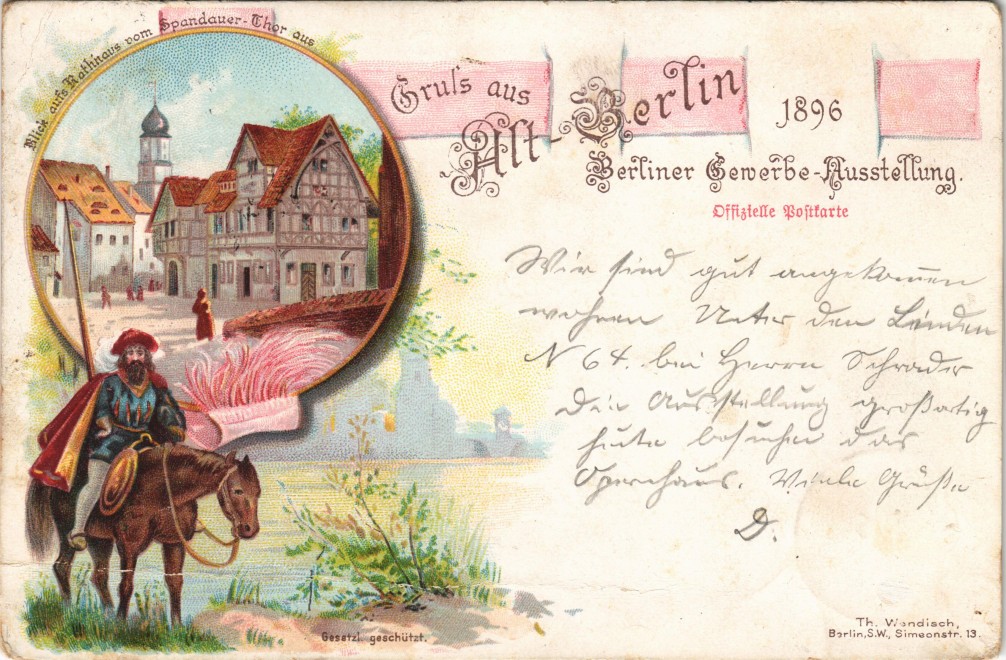 Blick auf's Rathhaus vom Spandauer-Thor aus
Gruss aus
Alt-Berlin
1896
Berliner Gewerbe-Ausstellung.
Offizielle Postkarte
Wir sind gut angekommen
wohnen Unter den Linden
N 64. bei Herrn Schrader
Die Ausstellung großartig
heute besuchen das
Opernhaus. Viele Grüße
D.
Gesetzl. geschützt.
Th. Wendisch,
Berlin, S.W., Simeonstr. 13.